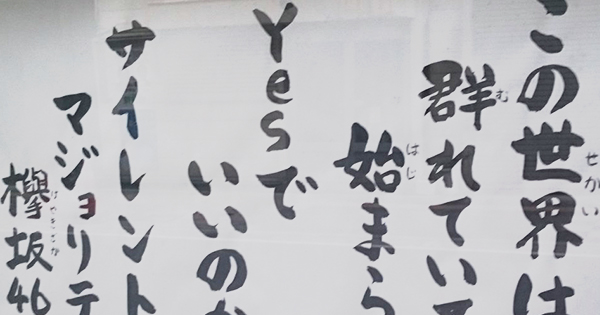 この世界は
群れていて
始まら
Yesで
いいのか
サイレント
マジョリテ
欅坂46